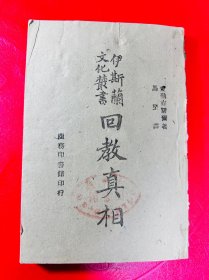 馬堅譯
伊斯蘭
文化叢書
回教真相
商務印書館印行